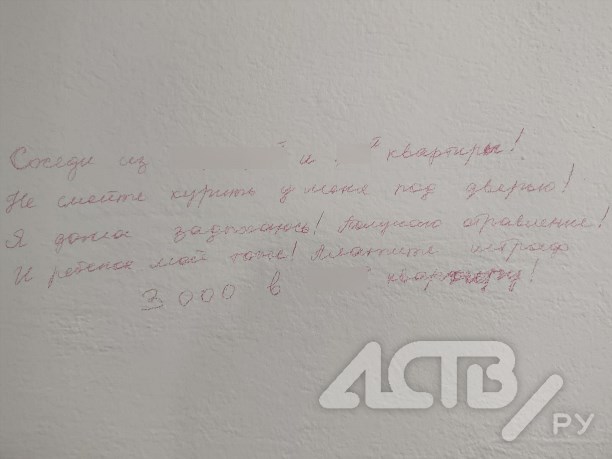 Соседи из й и й квартиры!
Не смейте курить у меня под дверью!
Я дома задыхаюсь! Получаю отравление!
И ребенок мой тоже! Платите штраф
3000 в й квартиру!
АСТВ.РУ